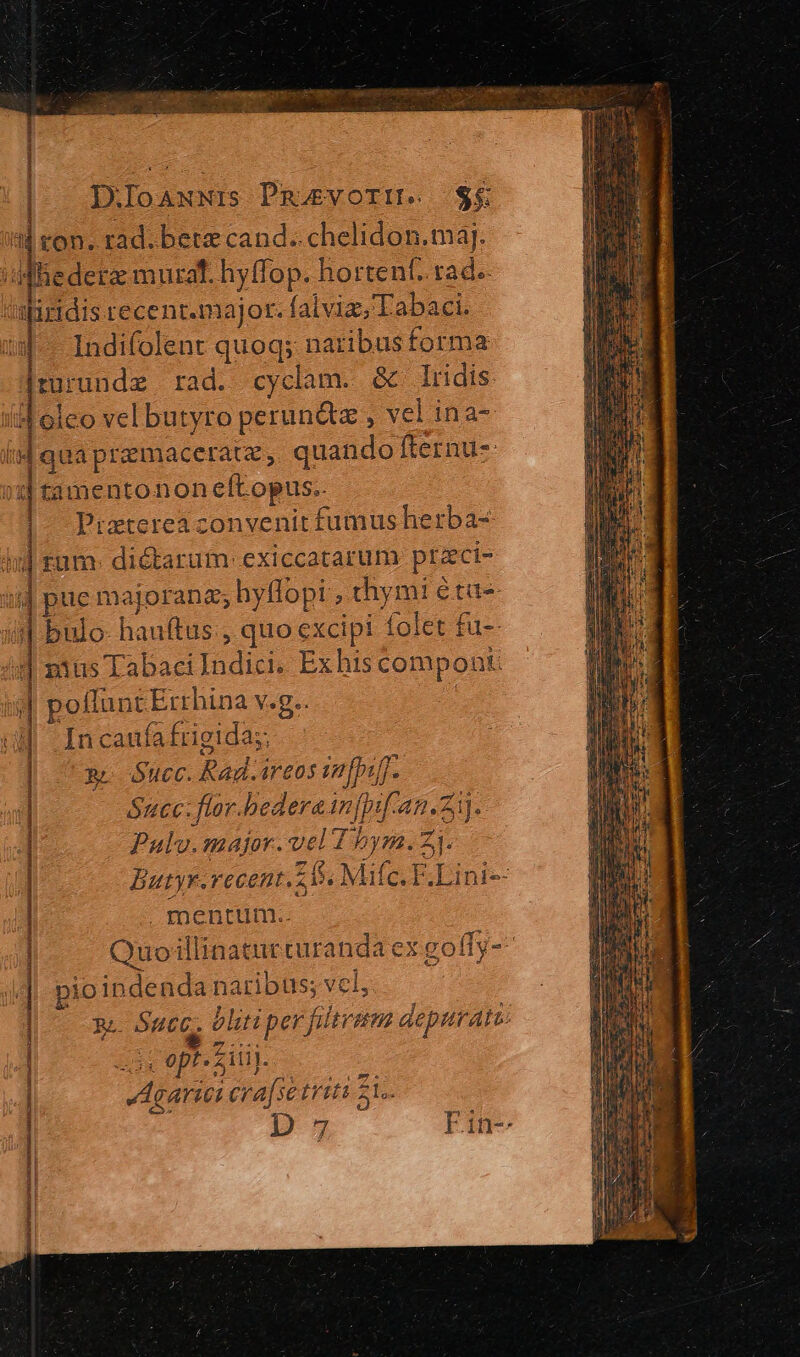 D. IOANNIS PRÆVOTII. 85
ton. rad. betæ cand. chelidon. maj.
hederæ mural. hyſſop. hortenſ. rad.
iridis recent. major. ſalviæ, Tabaci.
Indiſolent quoq; naribus forma
turundæ rad. cyclam. & Iridis
oleo vel butyro perunctæ, vel in a-
qua præmaceratæ, quando ſternu-
tamento non eſt opus.
Præterea convenit fumus herba-
rum dictarum exiccatarum præci-
pue majoranæ, hyſſopi, thymi è tu-
bulo hauſtus, quo excipi ſolet fu-
mus Tabaci Indici. Ex his componi
poſſunt Errhina v.g.
In cauſa frigida;
℞. Succ. Rad. ireos inſpiſſ.
Succ. flor. hederæ inſpiſ. an. ʒij.
Pulv. major. vel Thym. ʒj.
Butyr. recent. ℥ß. Miſc. F. Lini-
mentum.
Quo illinatur turanda ex goſſy-
pio indenda naribus; vel,
℞. Succ. bliti per filtrum depurati
opt. ℥iiij.
Agarici craſſe triti ʒi.
D 7 Fin-